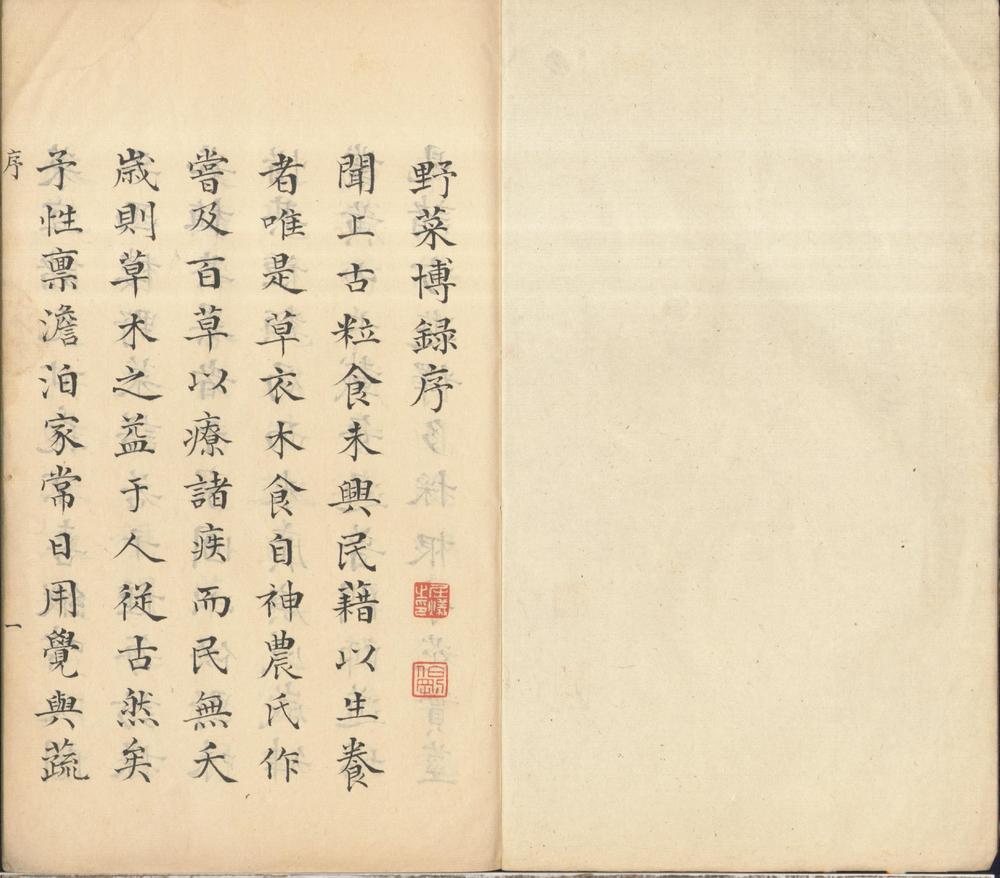 野菜博録序
聞上古粒食未興民藉以生養
者唯是草衣木食自神農氏作
嘗及百草以療諸疾而民無夭
歲則草木之益于人從古然矣
予性禀澹泊家常日用覺與蔬
序
一